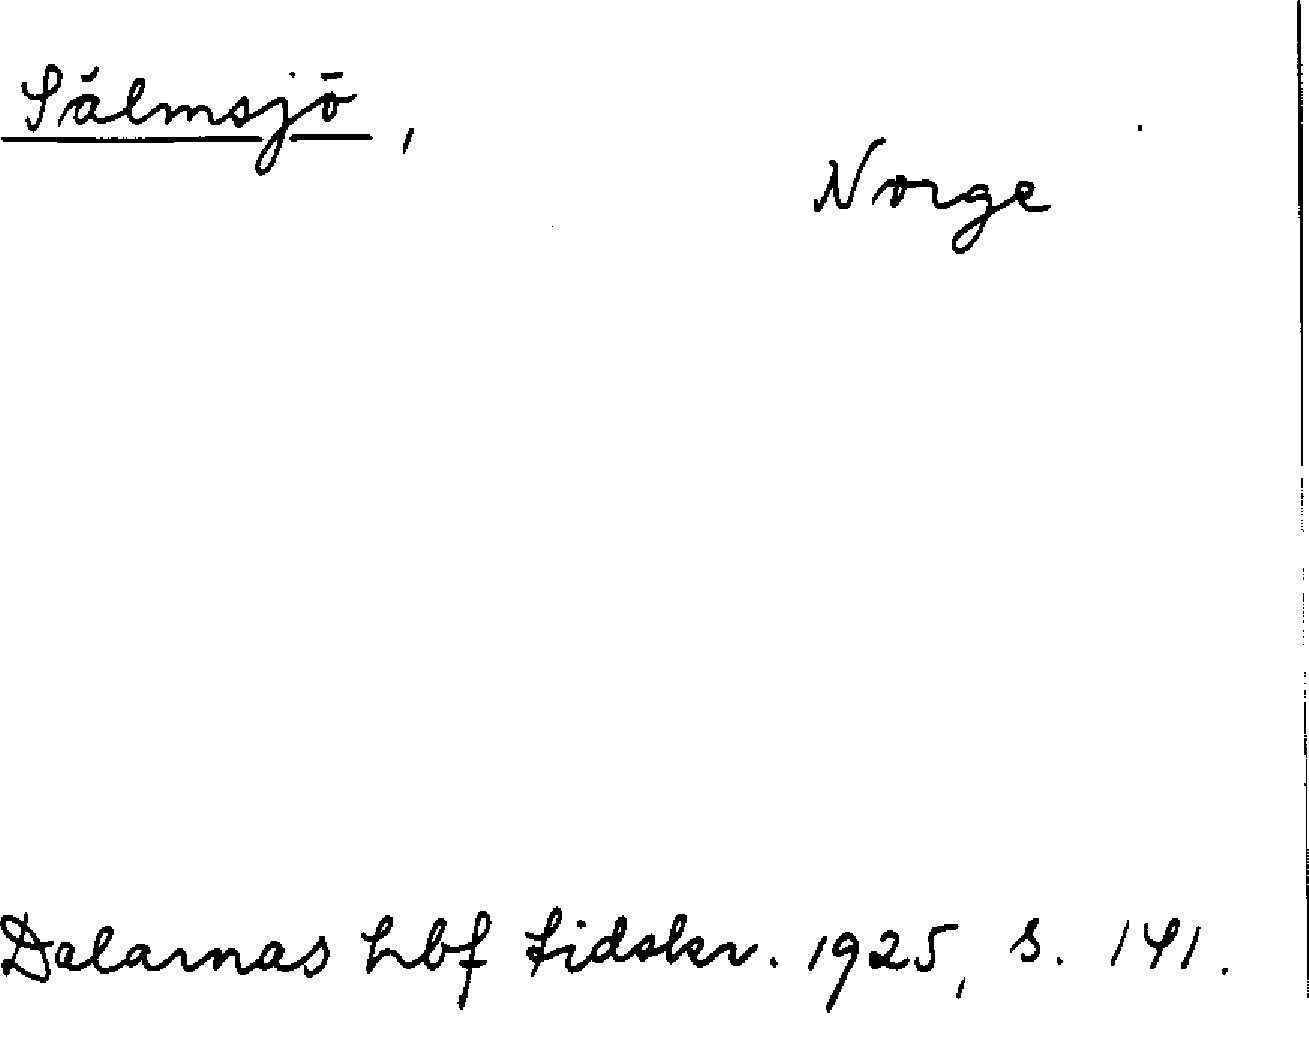 Sälmsjö,
Norge
Dalarnas hbf tidskr. 1925, s. 141.